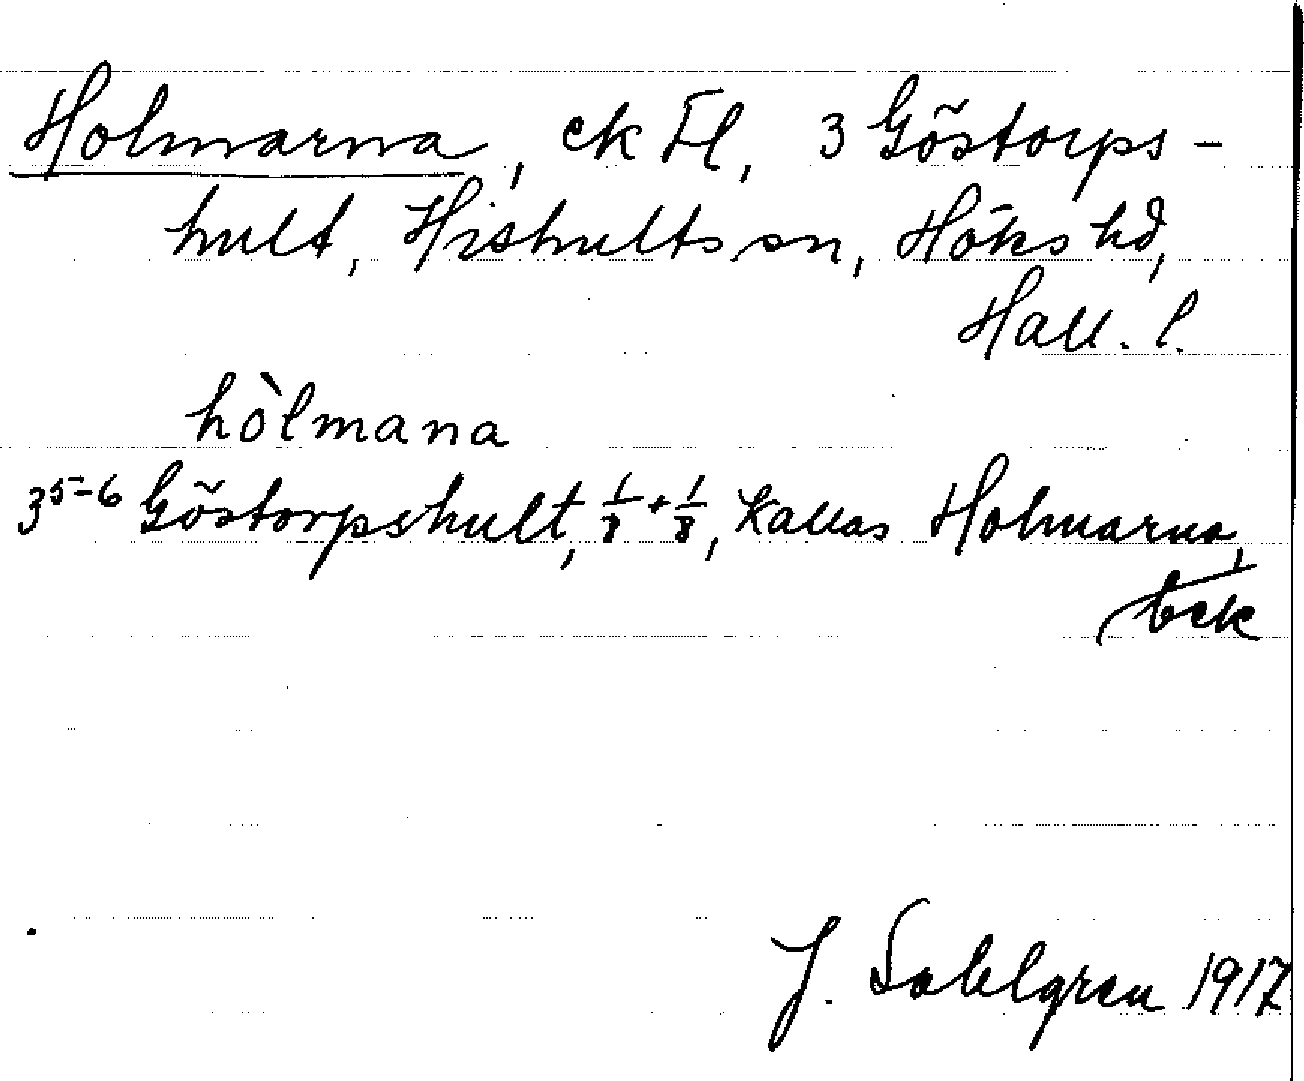 Holmarna, ek fl, 3 Göstorps-
hult, Hishults sn, Höks hd,
Hall. l.
hòlmana
3⁵⁻⁶ Göstorpshult, 1/8 + 1/8, kallas Holmarna,
bek
J. Sahlgren 1917